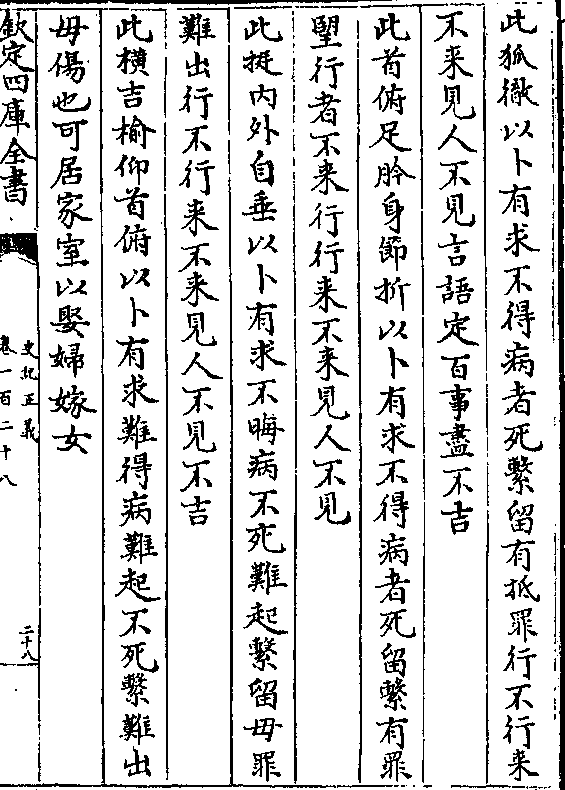 此狐徹以卜有求不得病者死繫留有抵罪行不行来
不来見人不見言語定百事盡不吉
此首俯足肣身節折以卜有求不得病者死留繫有罪
望行者不来行行来不来見人不見
此挺内外自垂以卜有求不晦病不死難起繫留毋罪
難出行不行来不来見人不見不吉
此横吉榆仰首俯以卜有求難得病難起不死繫難出
毋傷也可居家室以娶婦嫁女
欽定四庫全書
史記正義
卷一百二十八
二十八